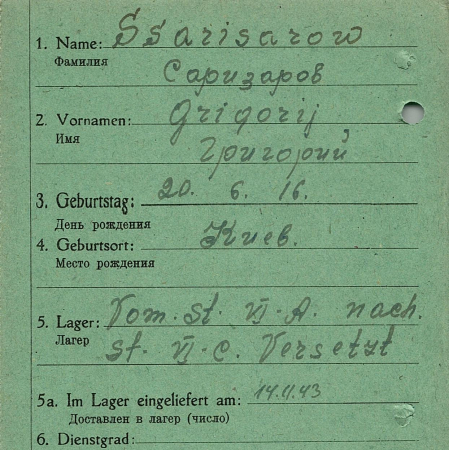 1. Name: Ssarisarow
Фамилия
Саризаров
2. Vornamen: Grigorij
Имя
Григорий
3. Geburtstag: 20. 6. 16.
День рождения
4. Geburtsort: Киев.
Место рождения
5. Lager: Vom. St. VI. A. nach.
Лагерь
St. VI. C. Versetzt
5a. Im Lager eingeliefert am: 14.11.43
Доставлен в лагерь (число)
6. Dienstgrad: